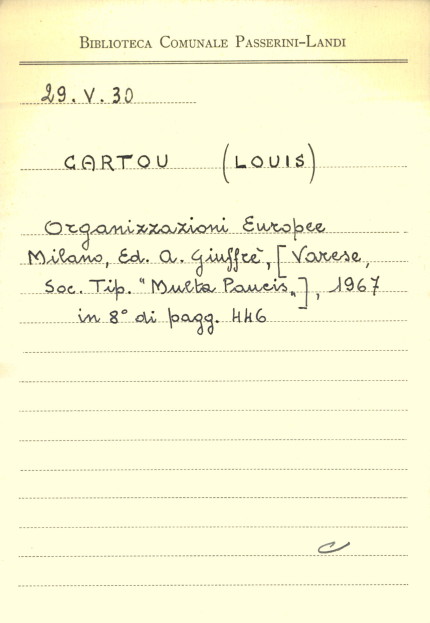 BIBLIOTECA COMUNALE PASSERINI-LANDI
29. V. 30
CARTOU (LOUIS)
Organizzazioni Europee
Milano, Ed. A. Giuffrè, [Varese,
Soc. Tip. "Multa Paucis„], 1967
in 8° di pagg. 446
C